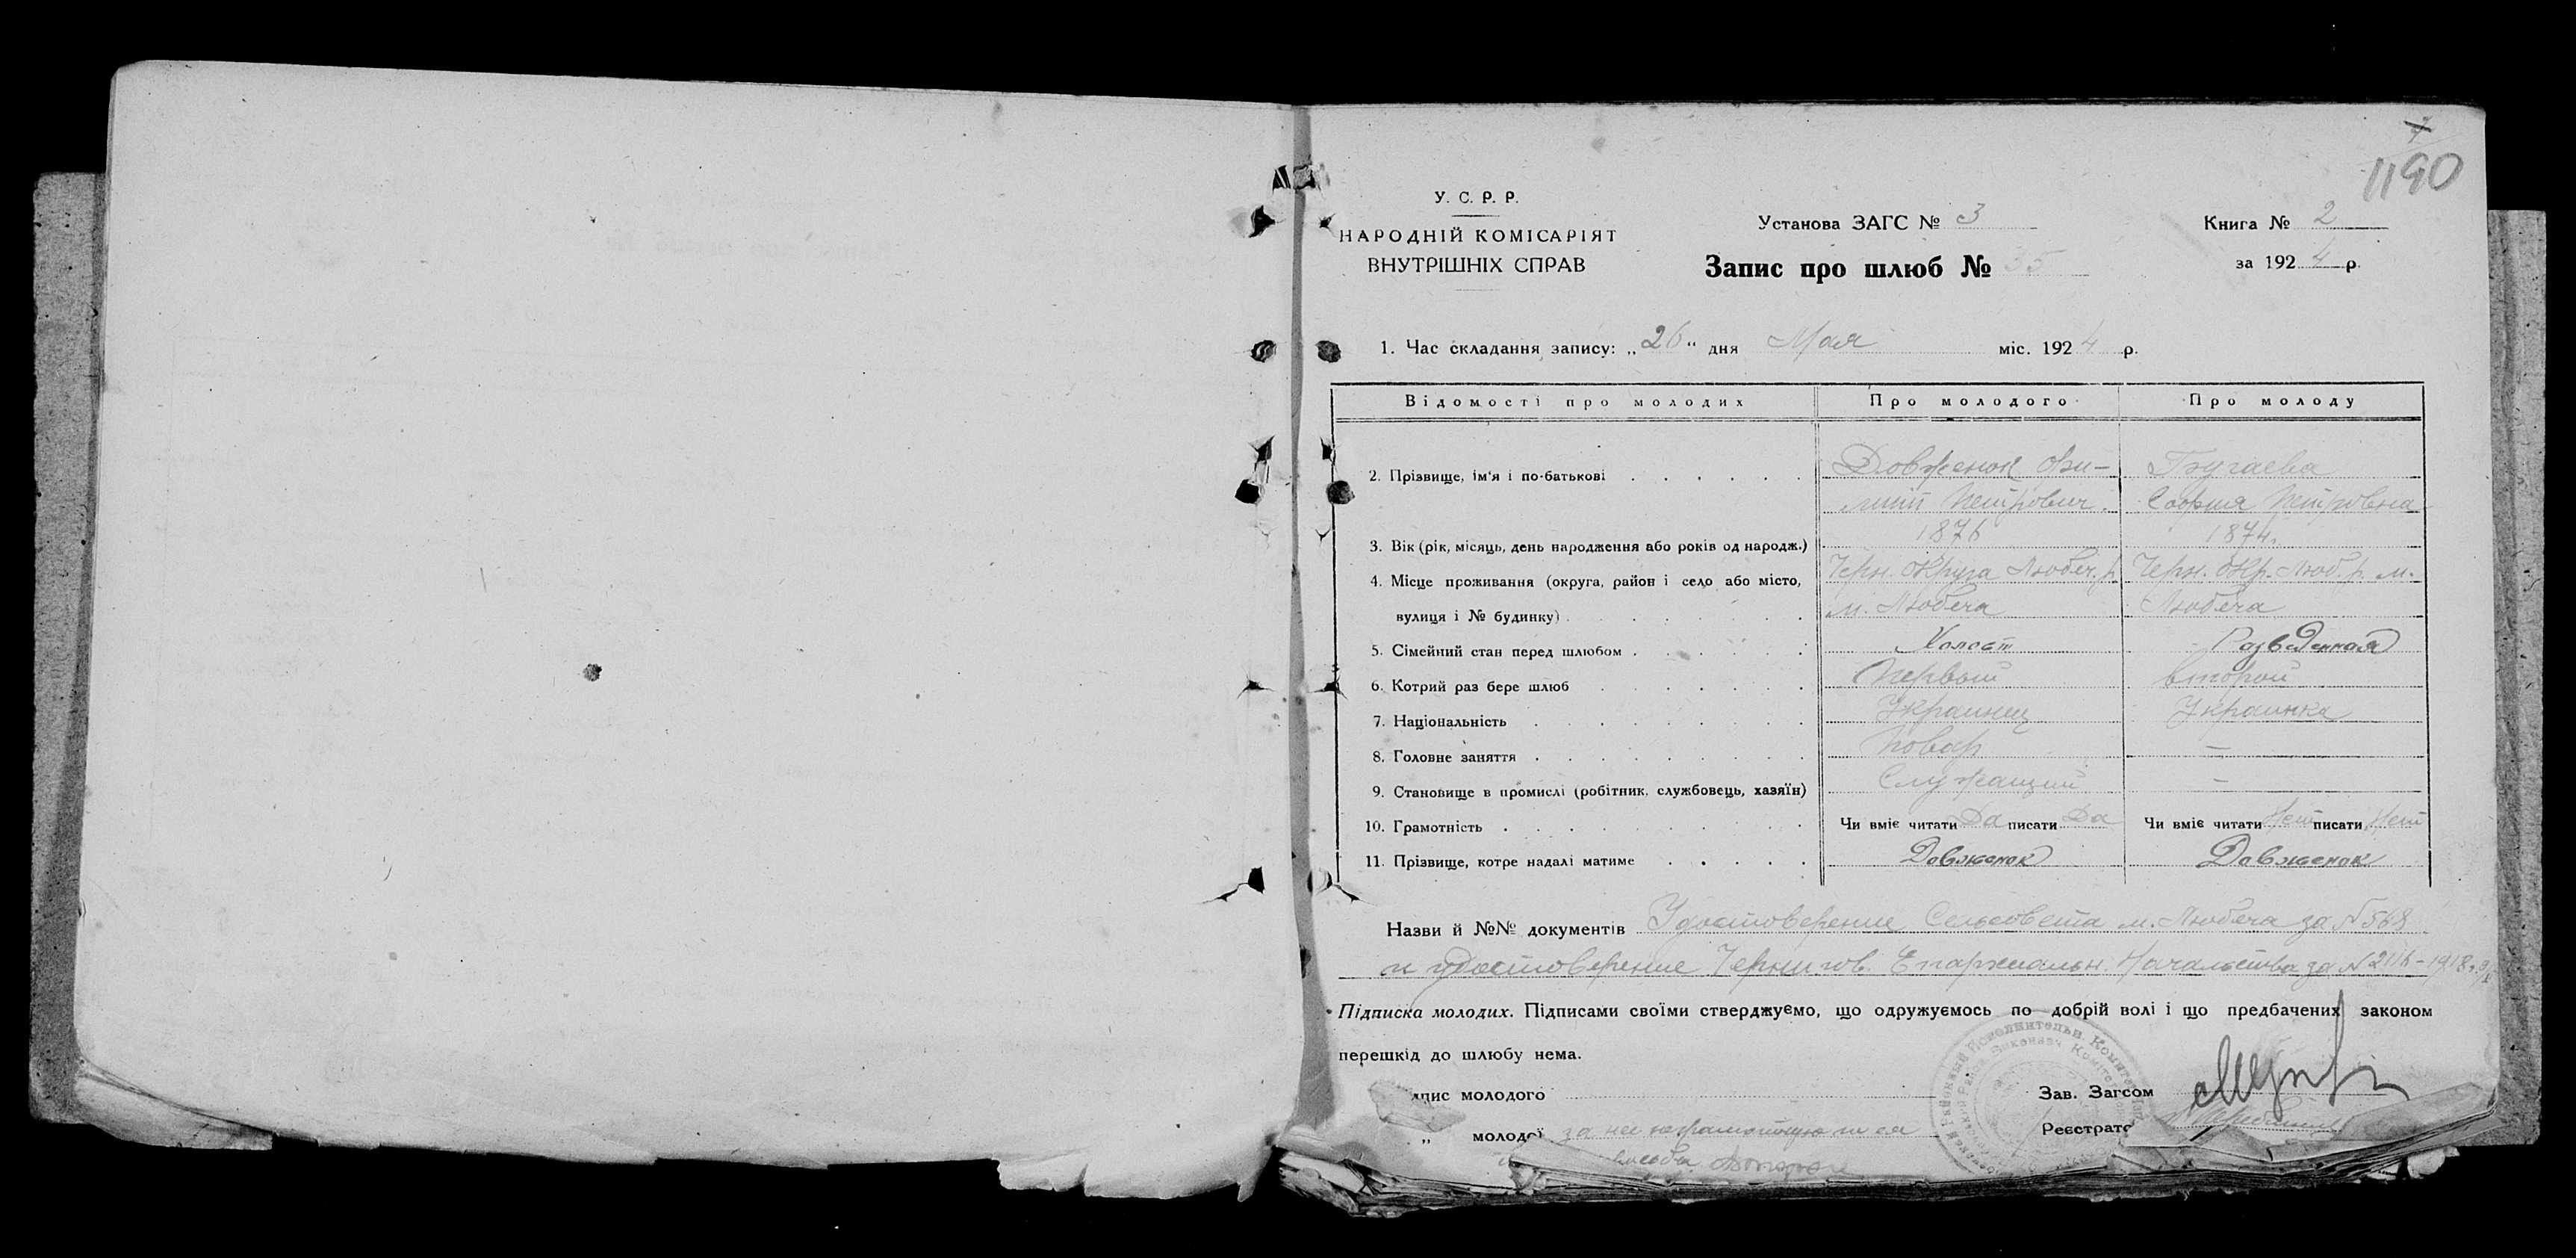 1190
У. С. Р. Р.
НАРОДНІЙ КОМІСАРІЯТ
ВНУТРІШНІХ СПРАВ
Установа ЗАГС № 3
Книга № 2
Запис про шлюб № 35
за 1924 р.
1. Час складання запису: „26" дня Мая міс. 1924 р.
Відомості про молодих Про молодого Про молоду
2. Прізвище, ім'я і по-батькові Довженок
Петрович София Петровна
3. Вік (рік, місяць, день народження або років од народж.) 1876 1874
4. Місце проживання (округа, район і село або місто, Черн. Округа Любеч. р. Черн. Окр. Люб. р. м.
вулиця і № будинку) м. Любеча Любеча
5. Сімейний стан перед шлюбом Холост Разведенная
6. Котрий раз бере шлюб Первый второй
7. Національність Украинец Украинка
8. Головне заняття Повар —
9. Становище в промислі (робітник, службовець, хазяїн) Служащий —
10. Грамотність Чи вміє читати Да писати Да Чи вміє читати Нет писати Нет
11. Прізвище, котре надалі матиме Довженок Довженок
Назви й №№ документів Удостоверение Сельсовета м. Любеча за № 568
и удостоверение Чернигов. Епархиальн. Начальства за № 2116 - 1918
Підписка молодих. Підписами своїми стверджуємо, що одружуємось по добрій волі і що предбачених законом
перешкід до шлюбу нема.
молодого
Зав. Загсом
молодої за неграмотную
Реєстрато